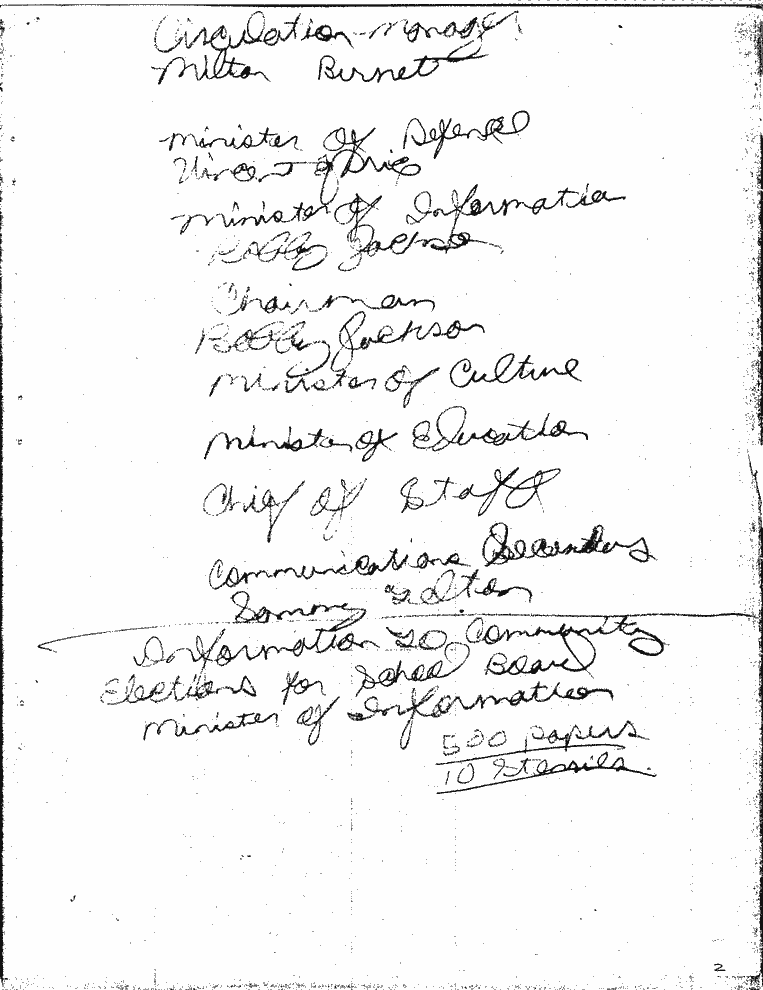 Circulation-manager
Milton Burnet
Minister of Defense
Vincent
Minister of Information
Bobby Jackson
Chairman
Bobby Jackson
Minister of Culture
Minister of Education
Chief of Staff
Communications Secendary
Sammy
Information to Community
Elections for School Board
Minister of Information
500 papers
10 Stensils.
2